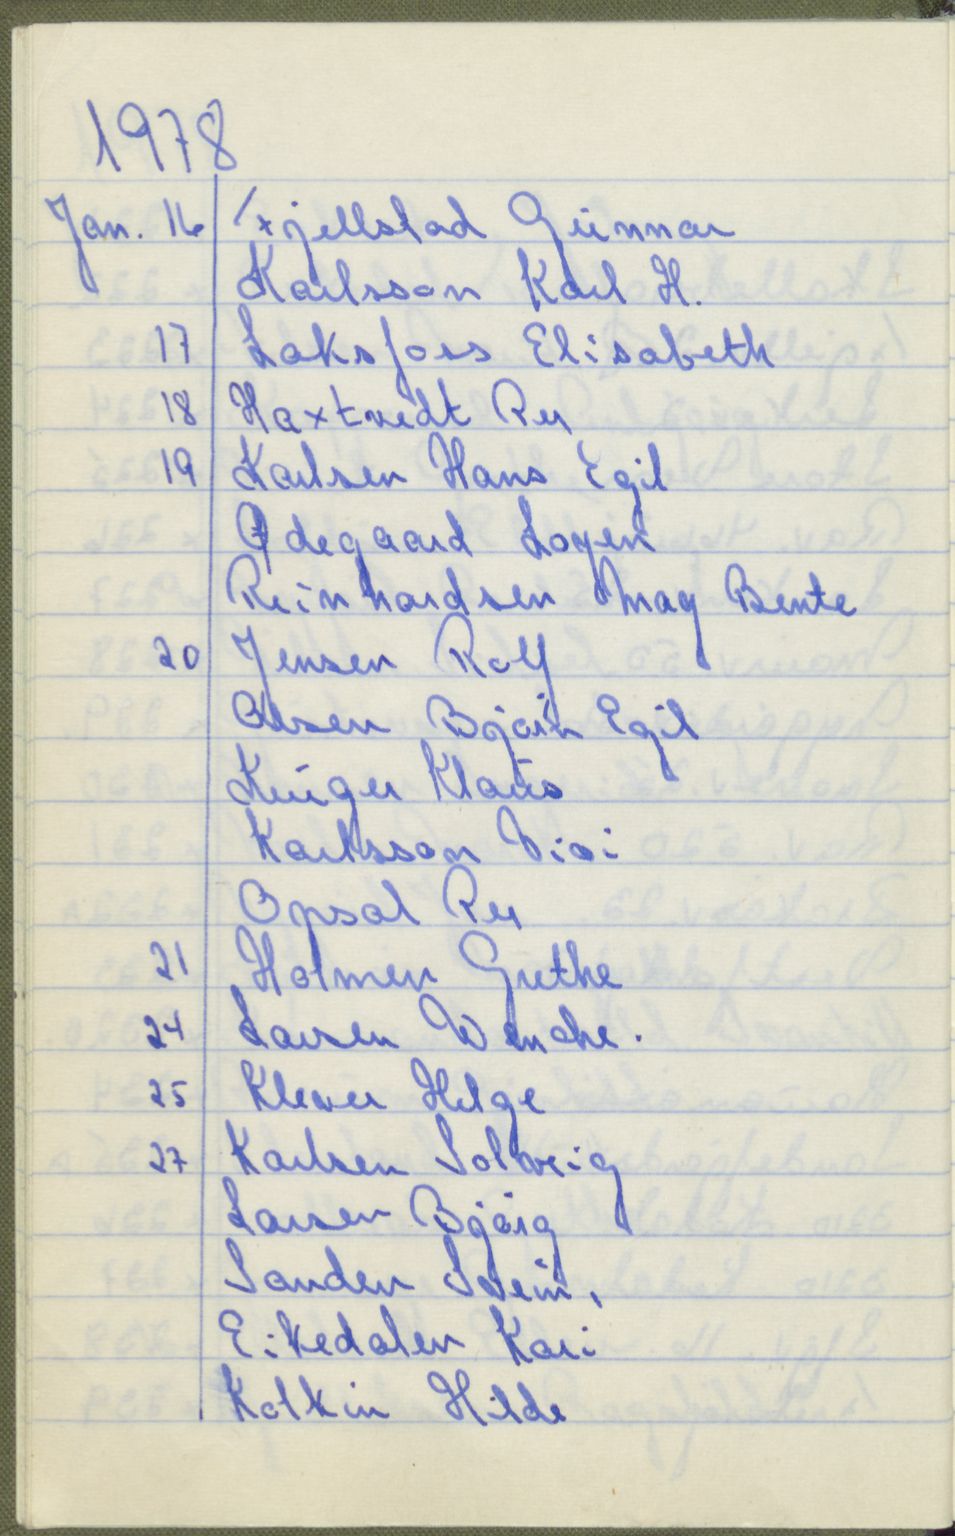 1978
Jan. 16 Fjellstad Gunnar
Karlsson Karl H.
17 Laksfoss Elisabeth
18 Haxtvedt Per
19 Karlsen Hans Egil
Ødegaard
Reinhardsen May Bente
20 Jensen Rolf
Olsen Bjørn Egil
Krüger Klaus
Karlsson Vivi
Opsal Per
21 Holmen Grethe
24 Larsen Wenche.
25 Klever Helge
27 Karlsen Solveig
Larsen Bjørg
Sanden Svein,
Eikedalen Kari
Kolkin Hilde